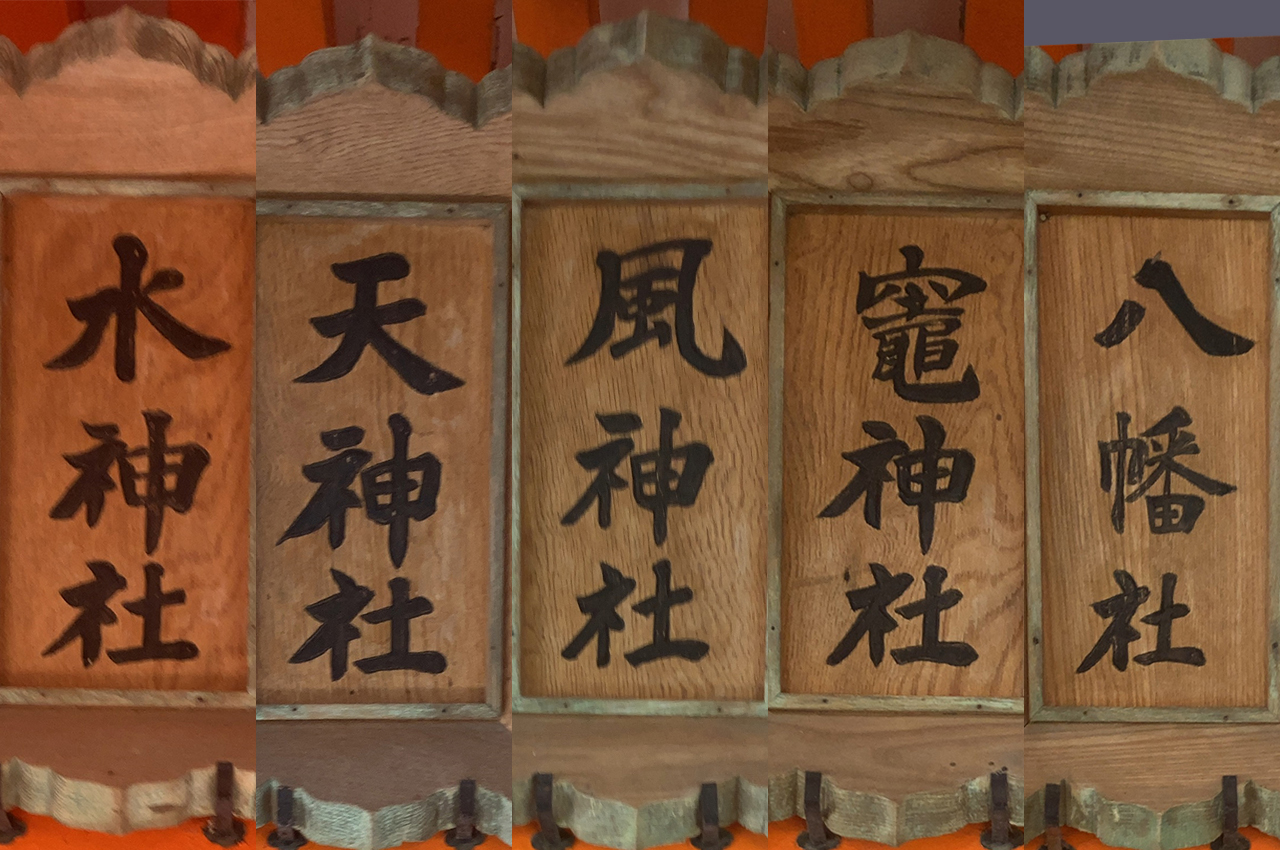 水神社
天神社
風神社
竈神社
八幡社